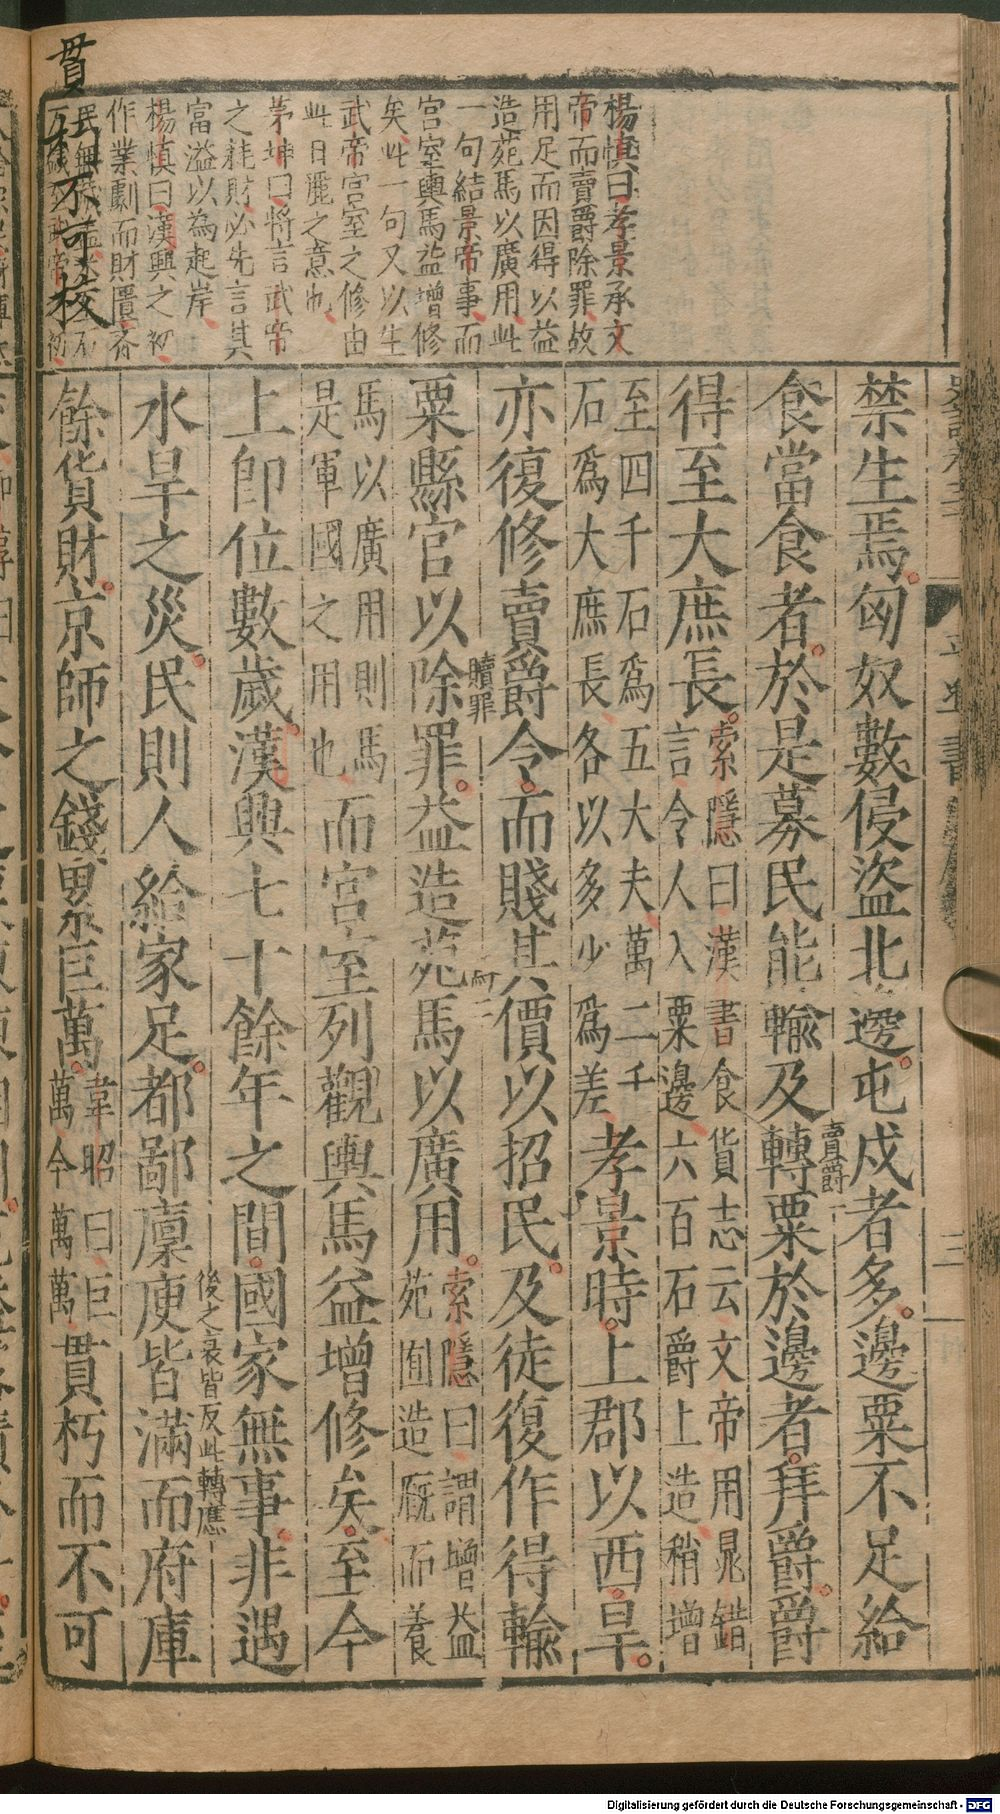 楊慎曰孝景承文
帝而賣爵除罪故
用足而因得以益
造苑馬以廣用此
一句結景帝事而
宮室輿馬益增修
矣此一句又以生
武帝宮室之修由
此日滋之意也
茅坤曰將言武帝
之耗財必先言其
富溢以為起岸
楊慎曰漢興之初
作業劇而財匱
貫
朽不可校
禁生焉匈奴數侵盜北邊屯戍者多邊粟不足給
食當食者於是募民能輸及轉粟於邊者拜爵爵
賣爵
得至大庶長索隱曰漢書食貨志云文帝用晁錯
言令人入粟邊六百石爵上造稍增
至四千石爲五大夫萬二千
石爲大庶長各以多少爲差孝景時上郡以西旱
亦復修賣爵令而賤其價以招民及徒復作得輸
贖罪
粟縣官以除罪益造苑馬以廣用索隱曰謂增益
苑囿造廐而養
馬以廣用則馬
是軍國之用也而宮室列觀輿馬益增修矣至今
上卽位數歲漢興七十餘年之間國家無事非遇
後之衰皆反此轉應
水旱之災民則人給家足都鄙廩庾皆滿而府庫
餘貨財京師之錢累巨萬韋昭曰巨
萬今萬萬貫朽而不可
Digitalisierung gefördert durch die Deutsche Forschungsgemeinschaft - DFG